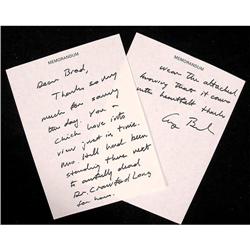 MEMORANDUM
Dear Brad,
Thanks so very
much for saving
the day. You &
Chick hove into
view just in time.
Mrs Hall had been
standing there next
to awfully dead
Dr. Crawford Long
for hours.
MEMORANDUM
wear the attached
knowing that it comes
with heartfelt thanks